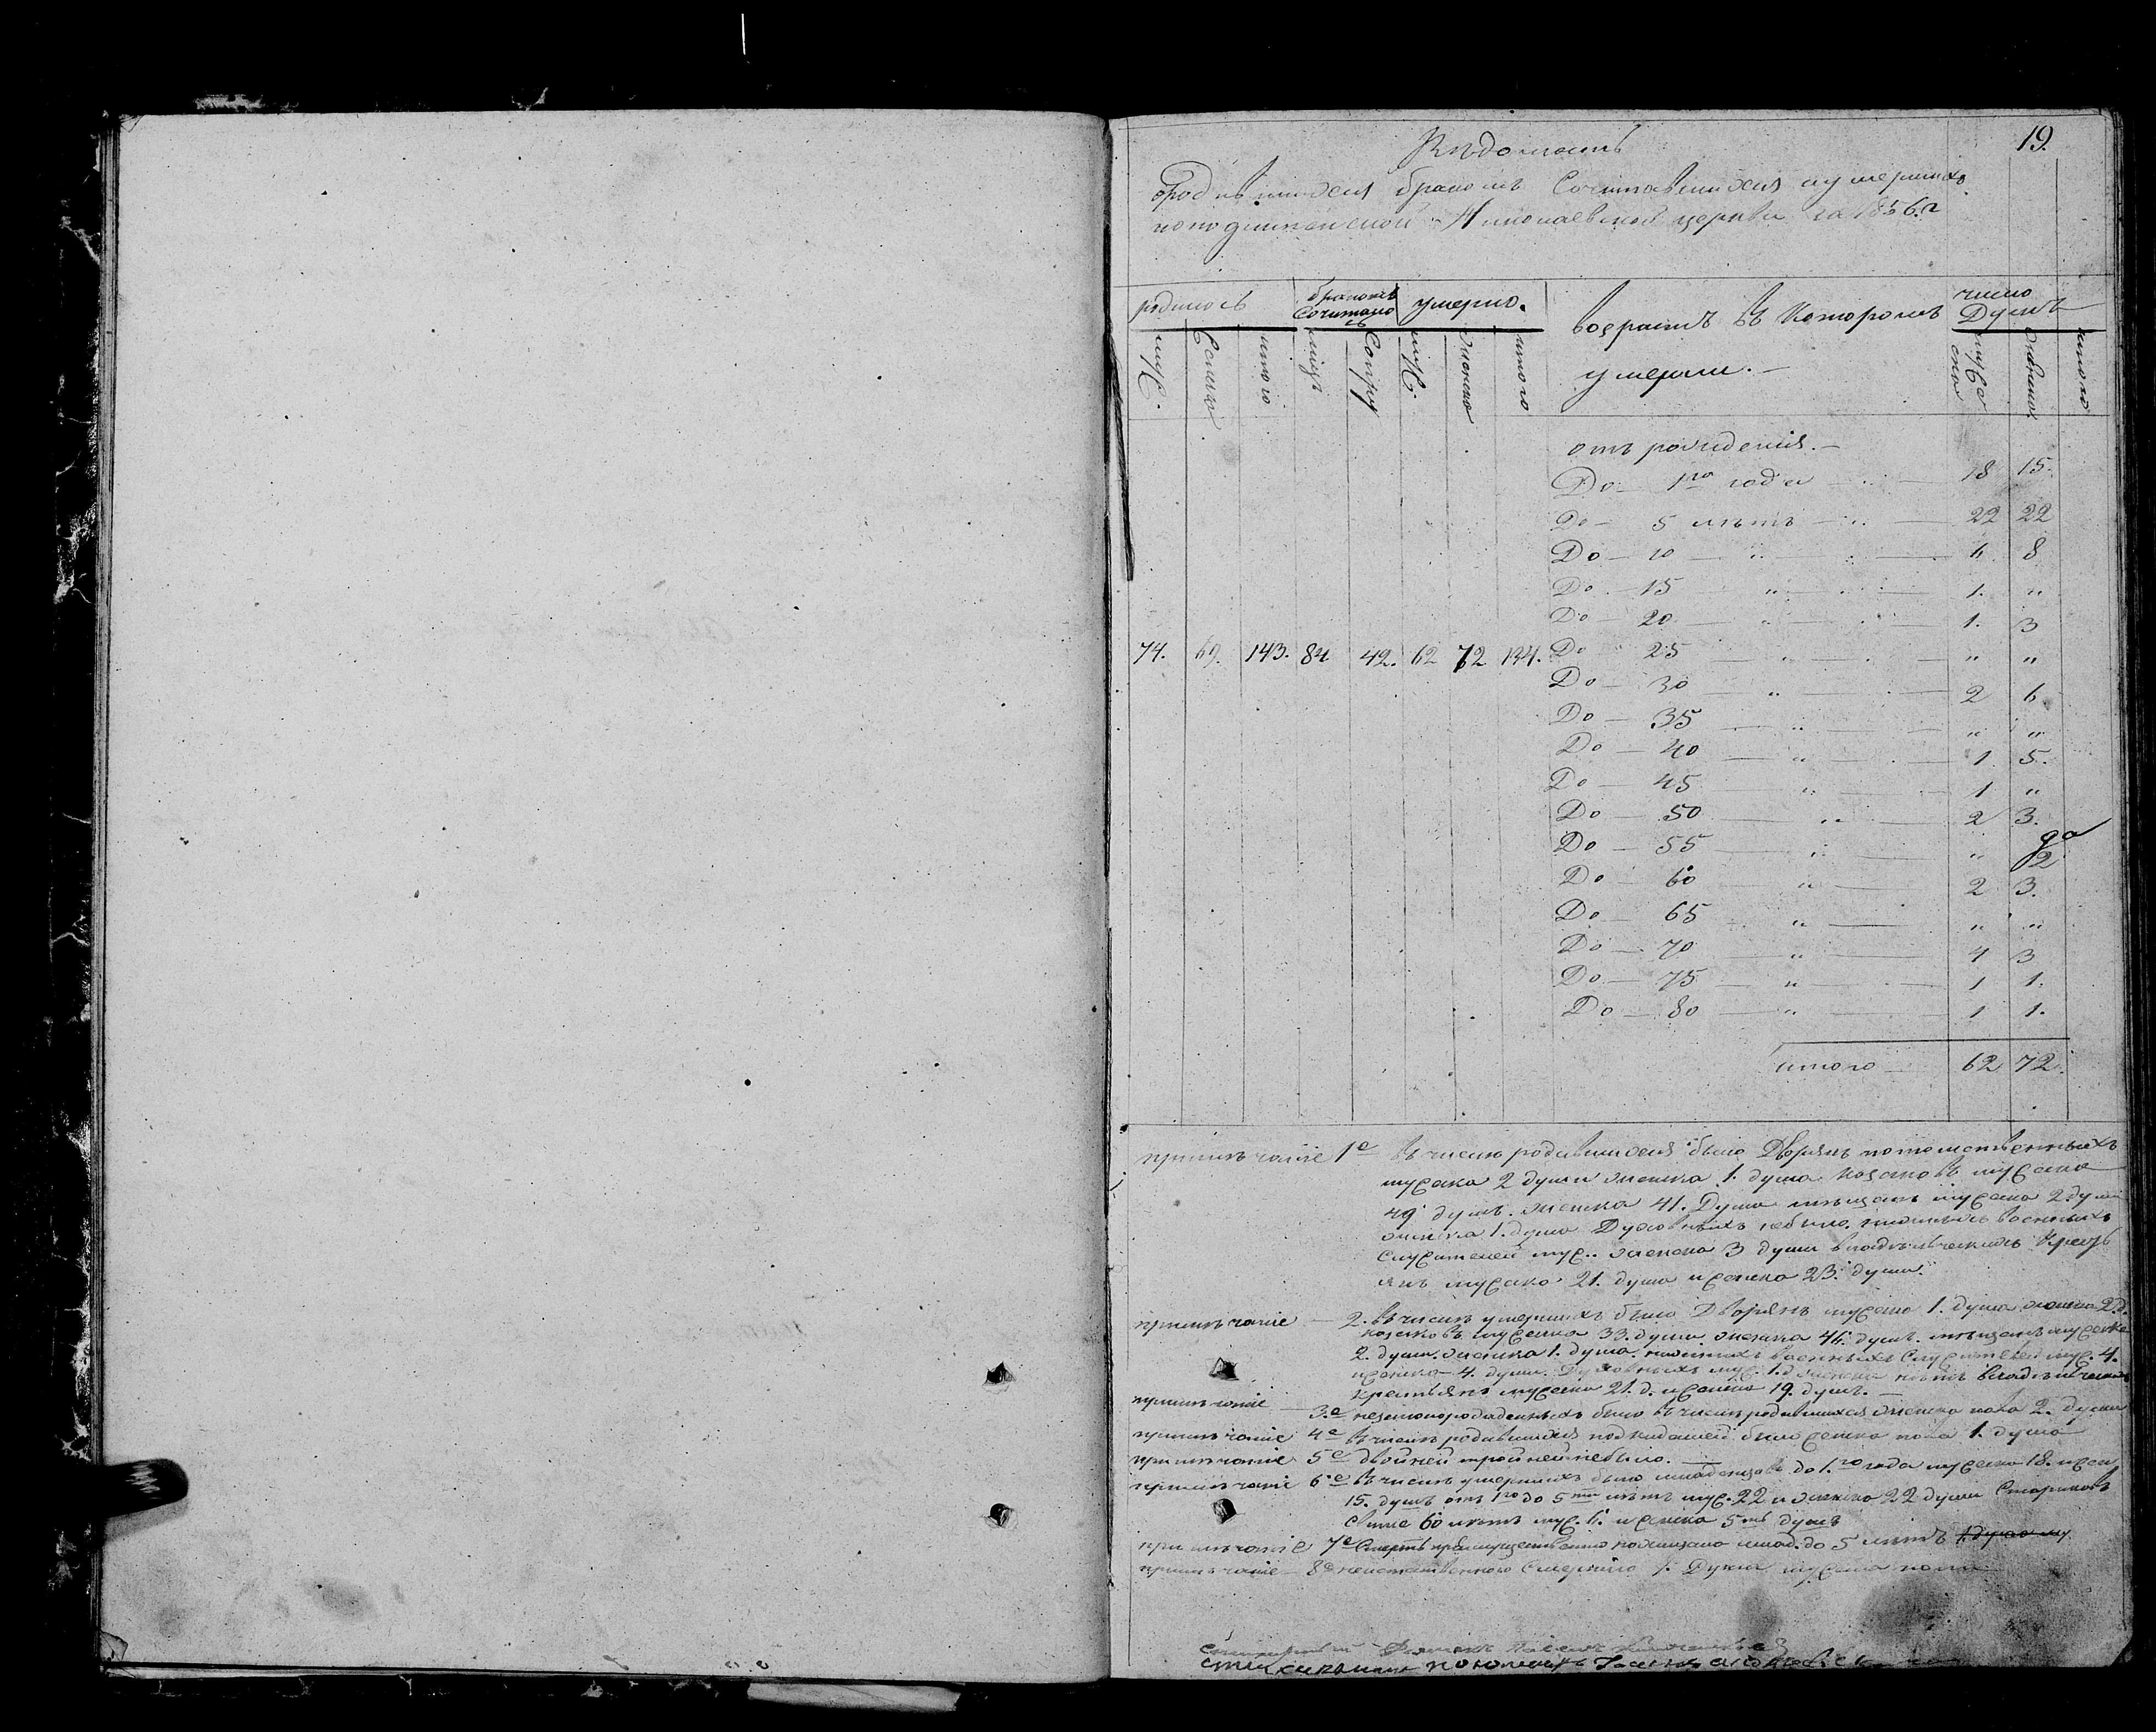 19.
Вѣдомость
Родившихся бракомъ Сочитавшихся и умершихъ
Николаевской церкви за 1856 г
родилось бракомъ Сочиталось умерло. возрастъ въ Которомъ умерали. число Душъ
муж. женск итого лицъ Супруж муж. женско итого мужеска женско итого
отъ рожденія.
До 1го года 18 15.
До 5 лѣтъ 22 22
До 10 " 6 8
До 15 " 1. "
До 20 " 1. 3
74. 69. 143. 84 42. 62 72 134. До 25 " " "
До 30 " 2 6.
До 35 " " "
До 40 " 1. 5.
До 45 " 1 "
До 50 " 2 3.
До 55 " " 2
До 60 " 2 3.
До 65 " " "
До 70 " 4 3
До 75 " 1 1.
До 80 " 1 1.
итого 62 72.
примѣчаніе 1е въ числѣ родившихся было Дворянъ потомственныхъ
мужска 2 души женска 1. душа козаковъ мужска
49 душъ. женска 41. Душа мѣщанъ мужска 2 души
женска 1. душа Духовныхъ небыло. военныхъ
Служителей муж. женска 3 души владѣльческихъ Кресть
янъ мужско 21. душа и женска 23. души.
примѣчаніе 2. въ числѣ умершихъ было Дворянъ мужска 1. душа женска 2. д.
козаковъ мужска 33. души женска 46. душъ. мѣщанъ мужска
2. души. женска 1. душа. нижнихъ военныхъ Служителей муж. 4.
и женска 4. души. Духовныхъ муж. 1. д. женска нѣтъ владѣльческихъ
крестьянъ мужска 21. д. и женска 19. душъ.
примѣчаніе 3.е незаконорожденныхъ было въ числѣ родившихся женска пола 2. души
примѣчаніе 4е въ числѣ родившихся подкидышей было женска пола 1. душа
примѣчаніе 5е двойней тройней небыло.
примѣчаніе 6е въ числѣ умершихъ было младенцовъ до 1.го года мужска 18. и жен
15. душъ отъ 1го до 5ти лѣтъ муж. 22 и женска 22 души Стариковъ
свыше 60 лѣтъ муж. 6. и женска 5ть душъ
примѣчаніе 7е Смерть преимущественно похищала млад. до 5 лѣтъ
примѣчаніе 8е Смертію 1. Душа мужска пола